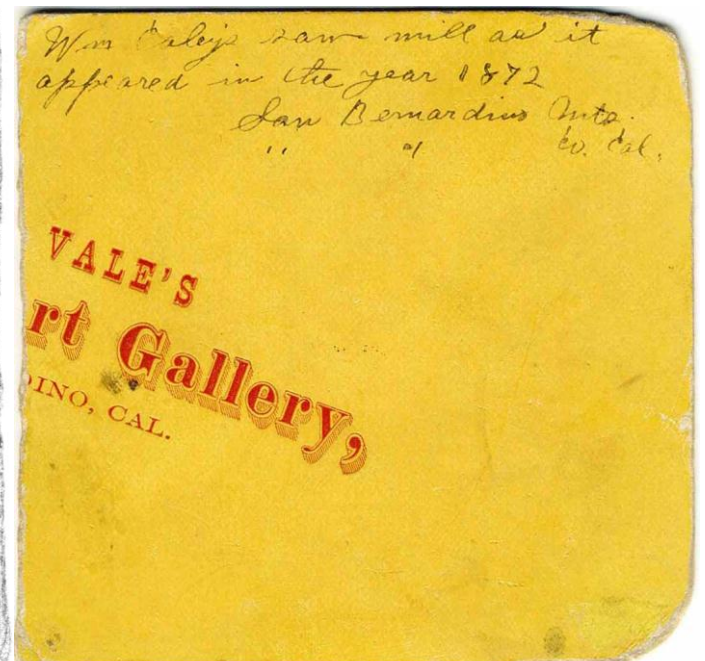 Wm Caley's saw mill as it
appeared in the year 1872
San Bernardino Mts.
" " Co. Cal.
VALE'S
rt Gallery,
DINO, CAL.